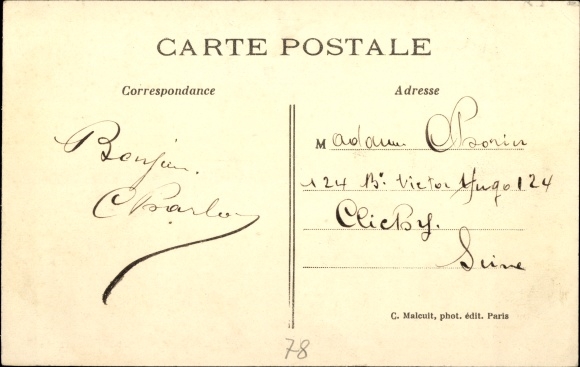 CARTE POSTALE
Correspondance
Adresse
Bonjour.
Charlo
Madame Chorin
124 Bd. Victor Hugo 124
Clichy.
Seine
C. Malcuit, phot. édit. Paris
78